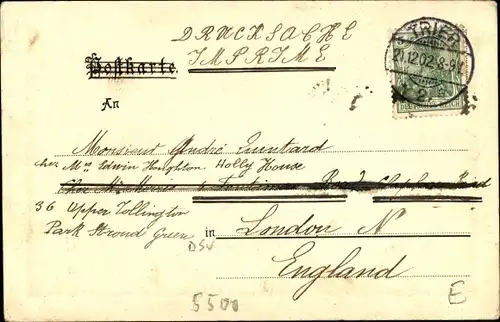 DRUCKSACHE
IMPRIMÉ
Postkarte.
TRIER
31.12.02.8-9V.
DEUTSCHES REICH
An
Monsieur André Quintard
chez Mrs Edwin Houghton Holly House
36 Upper Tollington
Park Stroud Green
in London N
England
DSV
5500
E